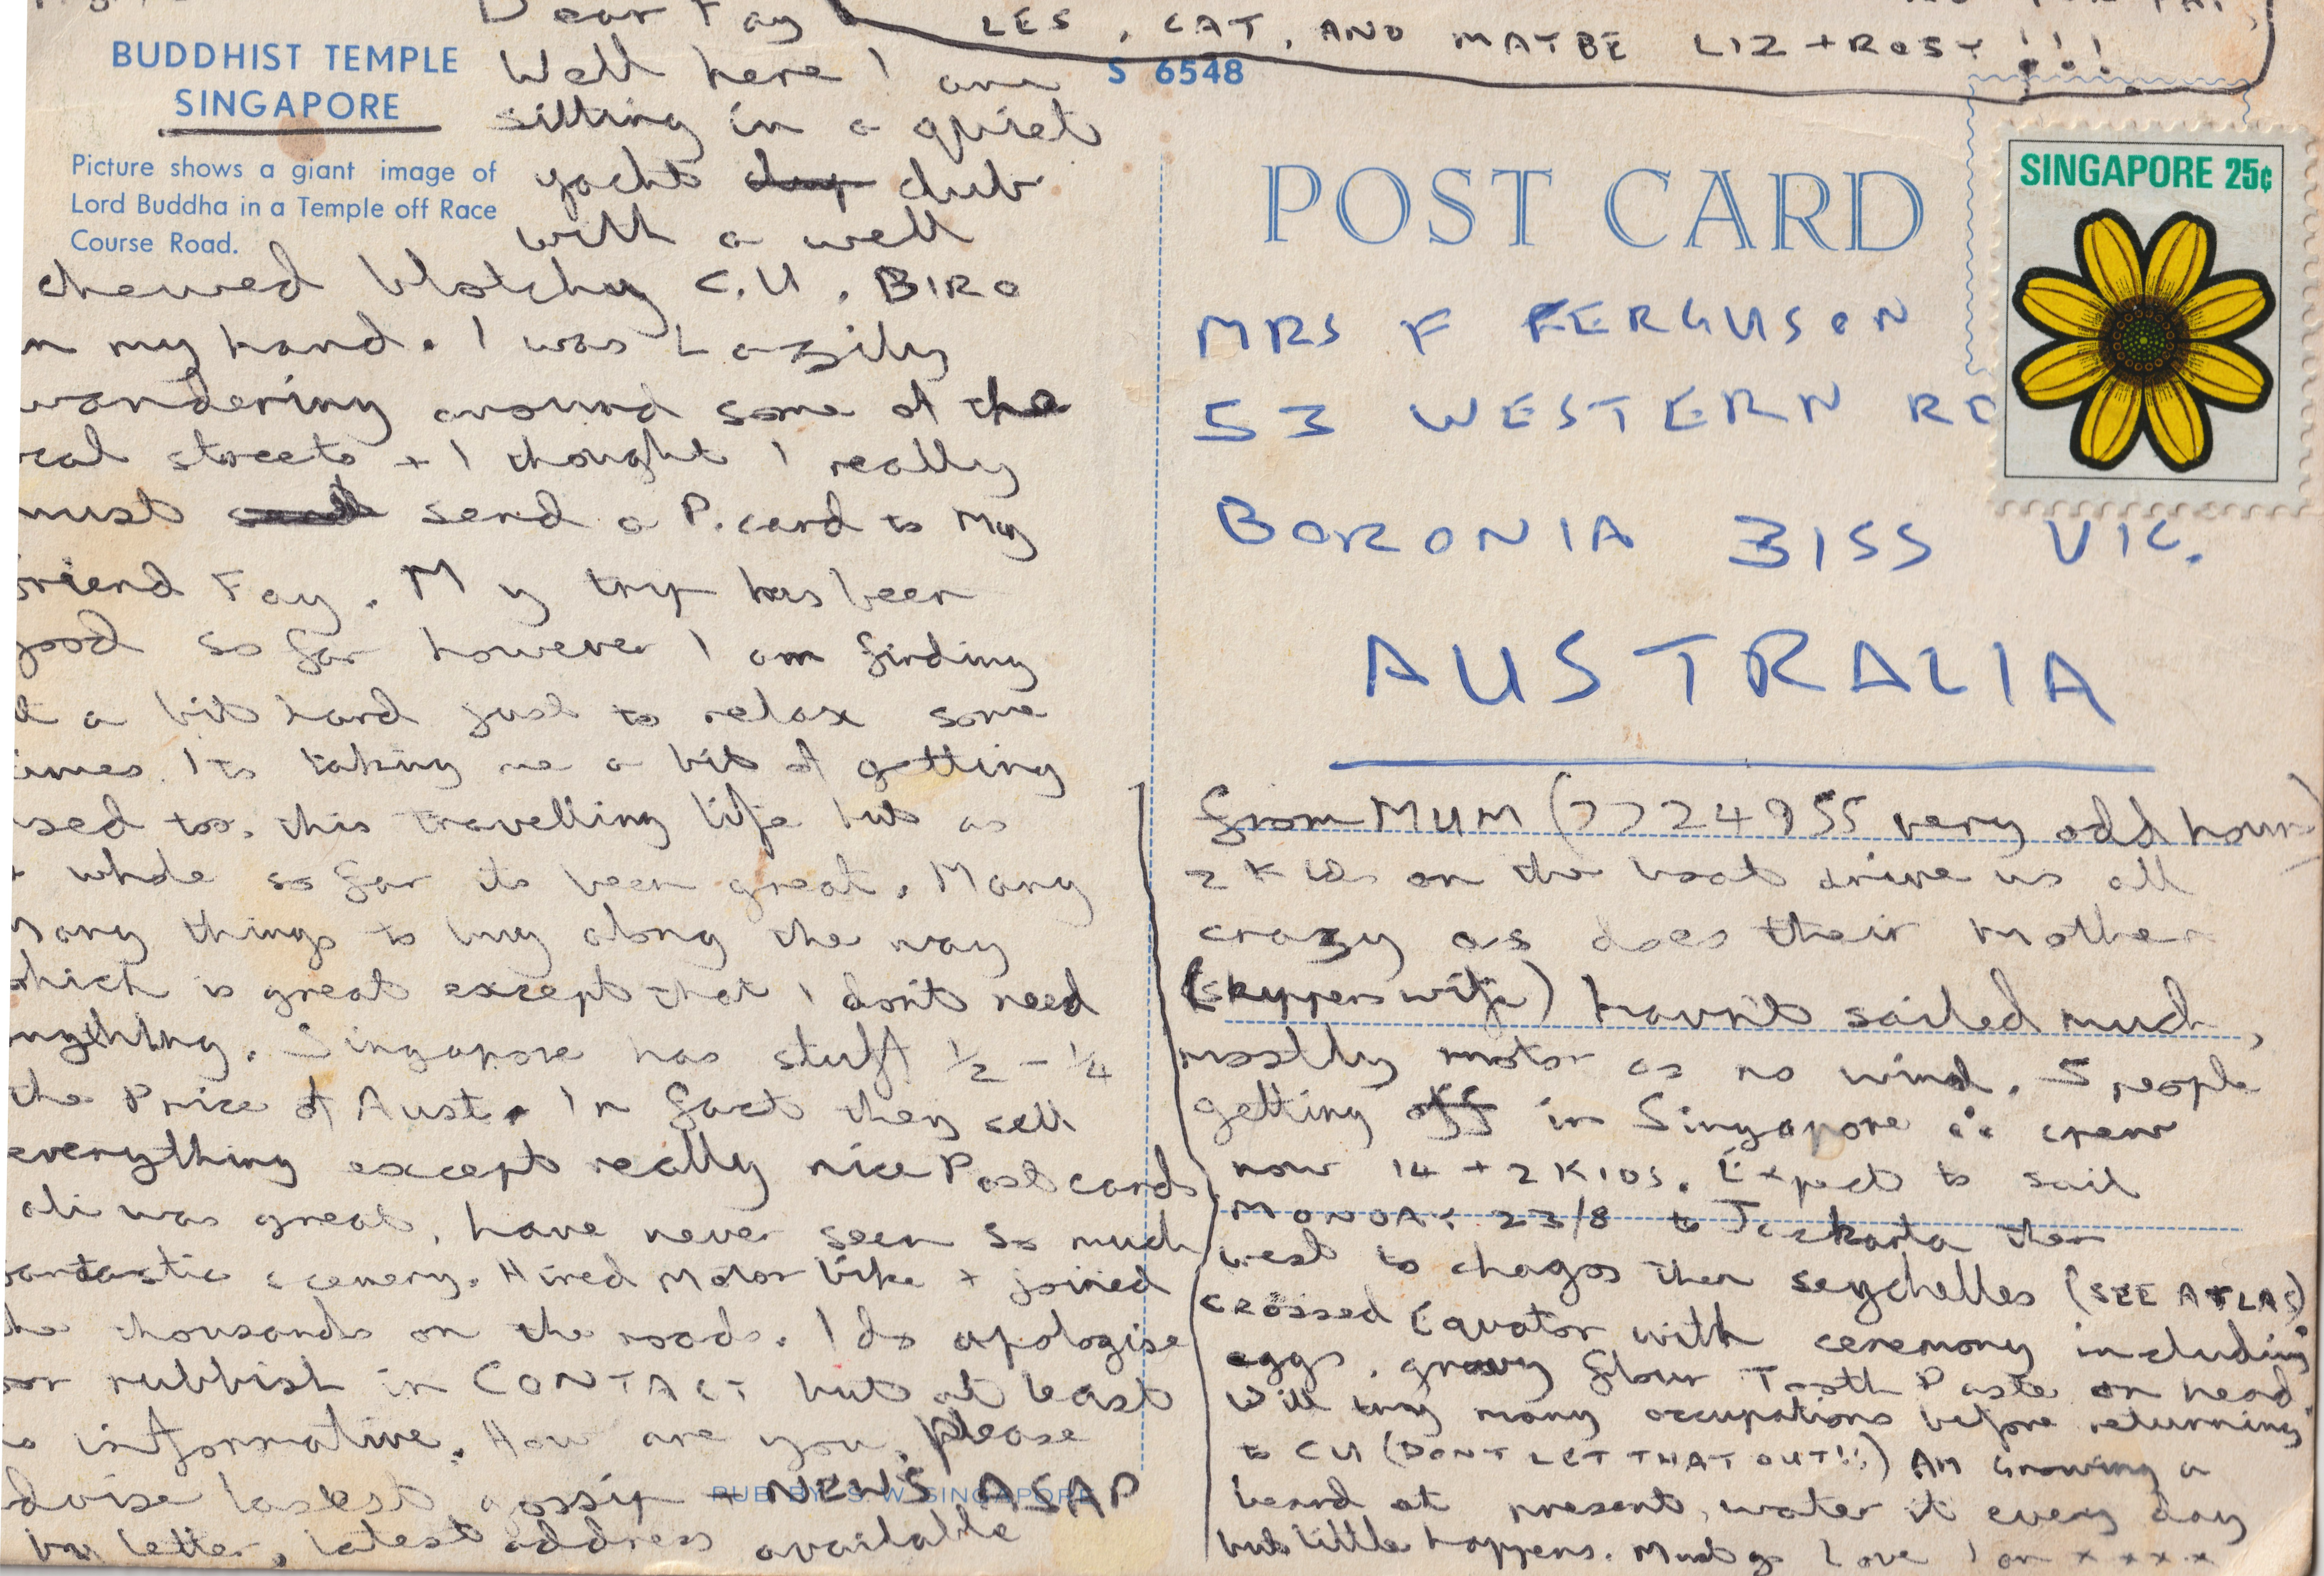 LES, CAT, AND MAYBE LIZ + ROSY !!!
BUDDHIST TEMPLE
SINGAPORE
Picture shows a giant image of
Lord Buddha in a Temple off Race
Course Road.
S 6548
Dear Fay
Well here I am
sitting in a quiet
yacht club
with a well
chewed blotchy C.U. BIRO
n my hand. I was Lazily
wandering around some of the
cal streets + I thought I really
must send a P.card to My
riend Fay. My trip has been
good so far however I am finding
it a bit hard just to relax some
imes. Its taking me a bit of getting
sed too, this travelling life but as
a whole so far its been great. Many
Many things to buy along the way
which is great except that I don't need
nything. Singapore has stuff 1/2 - 1/4
the Price of Aust. In fact they sell
everything except really nice Post cards
ali was great, have never seen so much
antastic scenery. Hired Motor bike + joined
he thousands on the roads. I do apologise
or rubbish in CONTACT but at least
is informative. How are you, please
dvise lastest gossip + NEWS ASAP
by letter, latest address available
PUB. BY S.W. SINGAPORE
POST CARD
SINGAPORE 25¢
MRS F FERGUSON
53 WESTERN RD
BORONIA 3155 VIC.
AUSTRALIA
from MUM (7724955 very odd hours)
2 KIDS on the boat drive us all
crazy as does their mother
(skippers wife) havn't sailed much,
mostly motor as no wind. 5 people
getting off in Singapore ∴ crew
now 14 + 2 KIDS. Expect to sail
MONDAY 23/8 to Jackarta then
west to chagos then seychelles (SEE ATLAS)
crossed Equator with ceremony including
eggs, gravy flour Tooth Paste on head
Will try many occupations before returning
to CU (DONT LET THAT OUT!!) AM Growing a
beard at present, water it every day
but little happens. Must go Love Ian x x x x